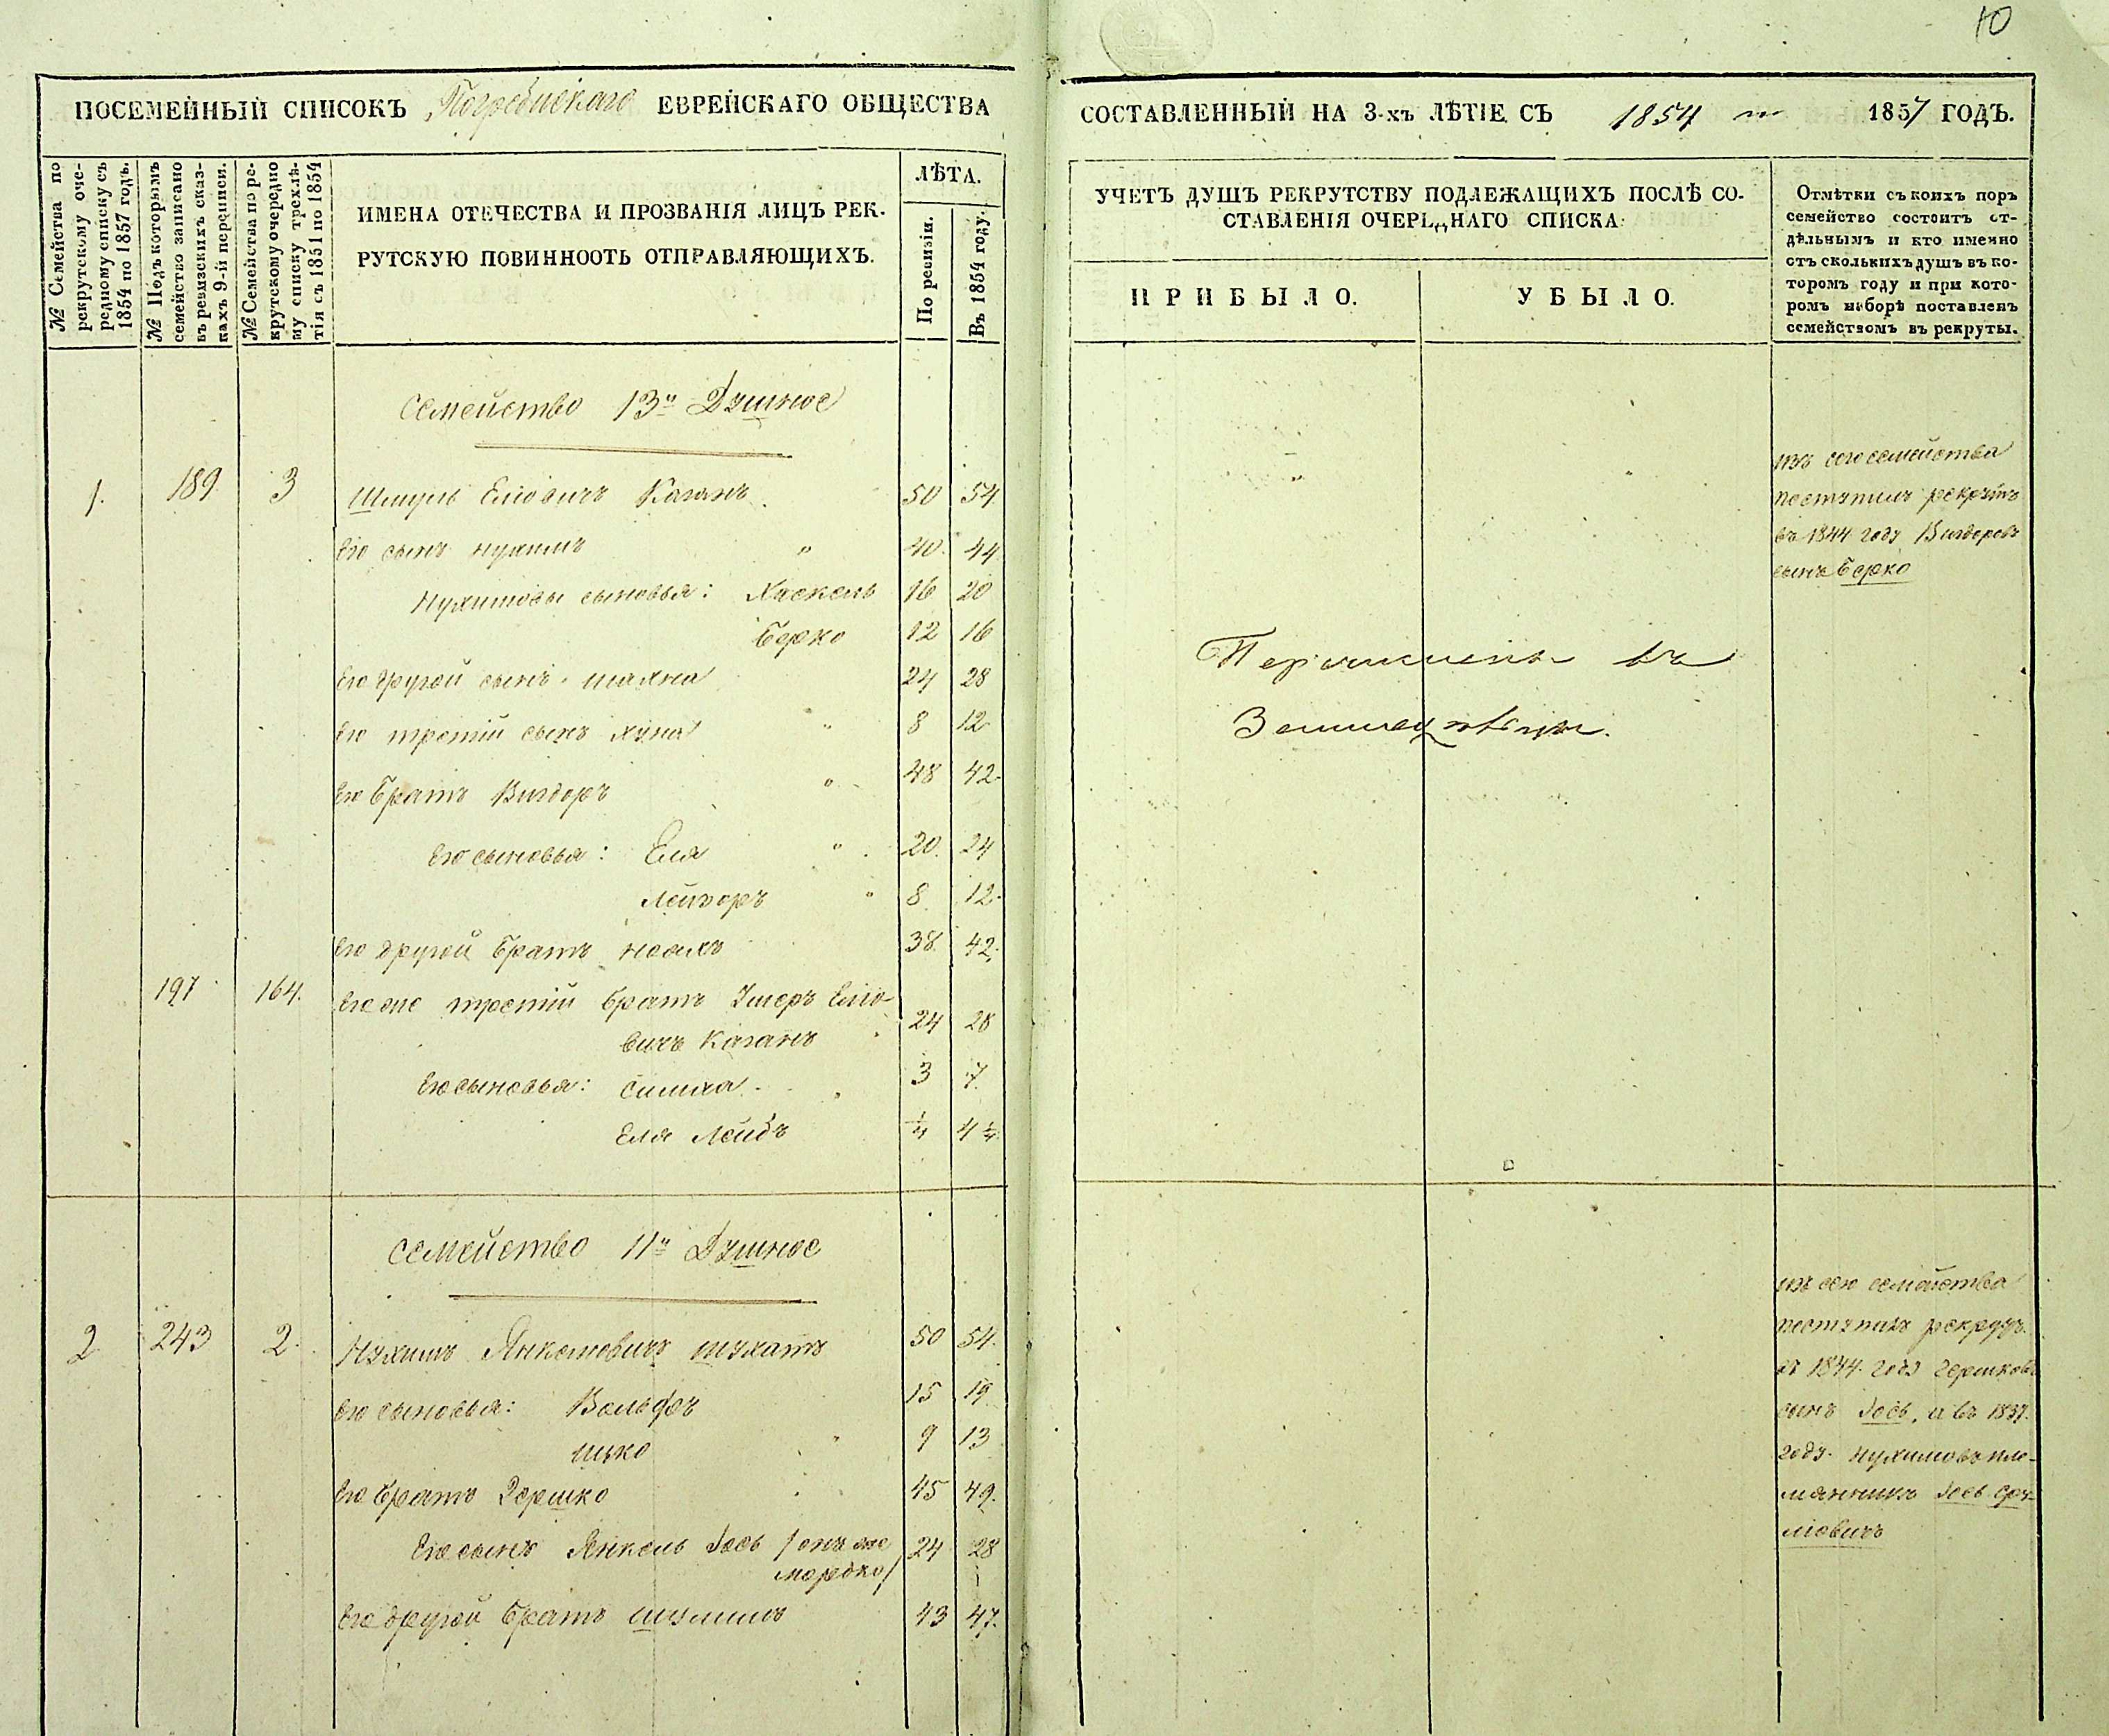 10
ПОСЕМЕЙНЫЙ СПИСОКЪ Погребискаго ЕВРЕЙСКАГО ОБЩЕСТВА
СОСТАВЛЕННЫЙ НА 3-хъ ЛѢТІЕ СЪ 1854 по 1857 ГОДЪ.
№ Семейства по
рекрутскому оче-
редному списку съ
1854 по 1857 годъ.
№ Подъ которымъ
семейство записано
въ ревизскихъ сказ-
кахъ 9-й переписи.
№ Семейства по ре-
крутскому очередно
му списку трехлѣ-
тія съ 1851 по 1854
ИМЕНА ОТЕЧЕСТВА И ПРОЗВАНІЯ ЛИЦЪ РЕК-
РУТСКУЮ ПОВИННООТЬ ОТПРАВЛЯЮЩИХЪ.
ЛѢТА.
По ревизіи.
Въ 1854 году.
УЧЕТЪ ДУШЪ РЕКРУТСТВУ ПОДЛЕЖАЩИХЪ ПОСЛѢ СО-
СТАВЛЕНІЯ ОЧЕРЕДНАГО СПИСКА
ПРИБЫЛО.
УБЫЛО.
Отмѣтки съ коихъ поръ
семейство состоитъ от-
дѣльнымъ и кто именно
отъ сколькихъ душъ въ ко-
торомъ году и при кото-
ромъ наборѣ поставленъ
семействомъ въ рекруты.
Семейство 13и Душное
1. 189 3 Шмуль Еліовичъ Каганъ 50 54
Его сынъ Нухимъ " 40 44
Нухимовы сыновья: Хаскель 16 20
Берко 12 16
Его другой сынъ Шахна 24 28
Его третій сынъ Хуна " 8 12
Его братъ Вигдоръ " 48 42
Его сыновья: Еля " 20 24
Лейзоръ " 8 12
Его другой братъ Несихъ 38 42
197 164. Его же третій братъ Ушеръ Еліо-
вичъ Каганъ 24 28
Его сыновья: Симха 3 7
Еля Лейбъ 1/4 4 1/4
изъ сего семейства
поступилъ рекрутъ
въ 1844 году Вигдоровъ
сынъ Берко
Перечисленъ въ
Семейство 11и Душное
2 243 2. Нухимъ Янкелевичъ Шухатъ 50 54
Его сыновья: Вольфъ 15 19
Ицко " 9 13
Его братъ Гершко 45 49
Его сынъ Янкель Іось /онъ же 24 28
Мордко/
Его другой братъ Шулимъ 43 47
изъ сего семейства
поступилъ рекрутъ
въ 1844 году Гершковъ
сынъ Іось, и въ 1837
году Нухимовъ пле-
мянникъ Іось Сру-
ліовичъ